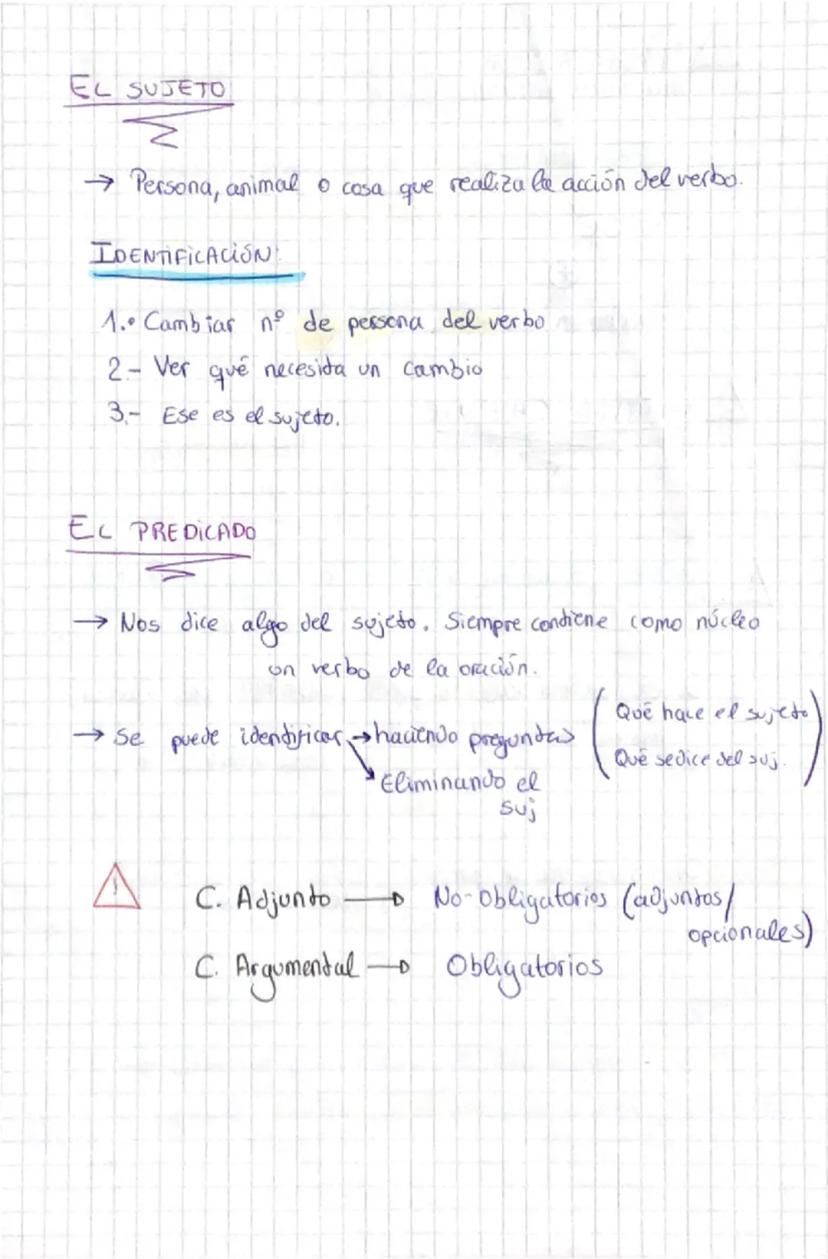 EL SUJETO
→ Persona, animal o cosa que realiza la acción del verbo.
IDENTIFICACIÓN:
1.- Cambiar nº de persona del verbo
2.- Ver qué necesita un cambio
3.- Ese es el sujeto.
EL PREDICADO
→ Nos dice algo del sujeto. Siempre contiene como núcleo
un verbo de la oración.
→ Se puede identificar →haciendo preguntas (Qué hace el sujeto
Qué se dice del suj.)
Eliminando el
suj
!
C. Adjunto → No-obligatorios (adjuntos/
opcionales)
C. Argumental → Obligatorios